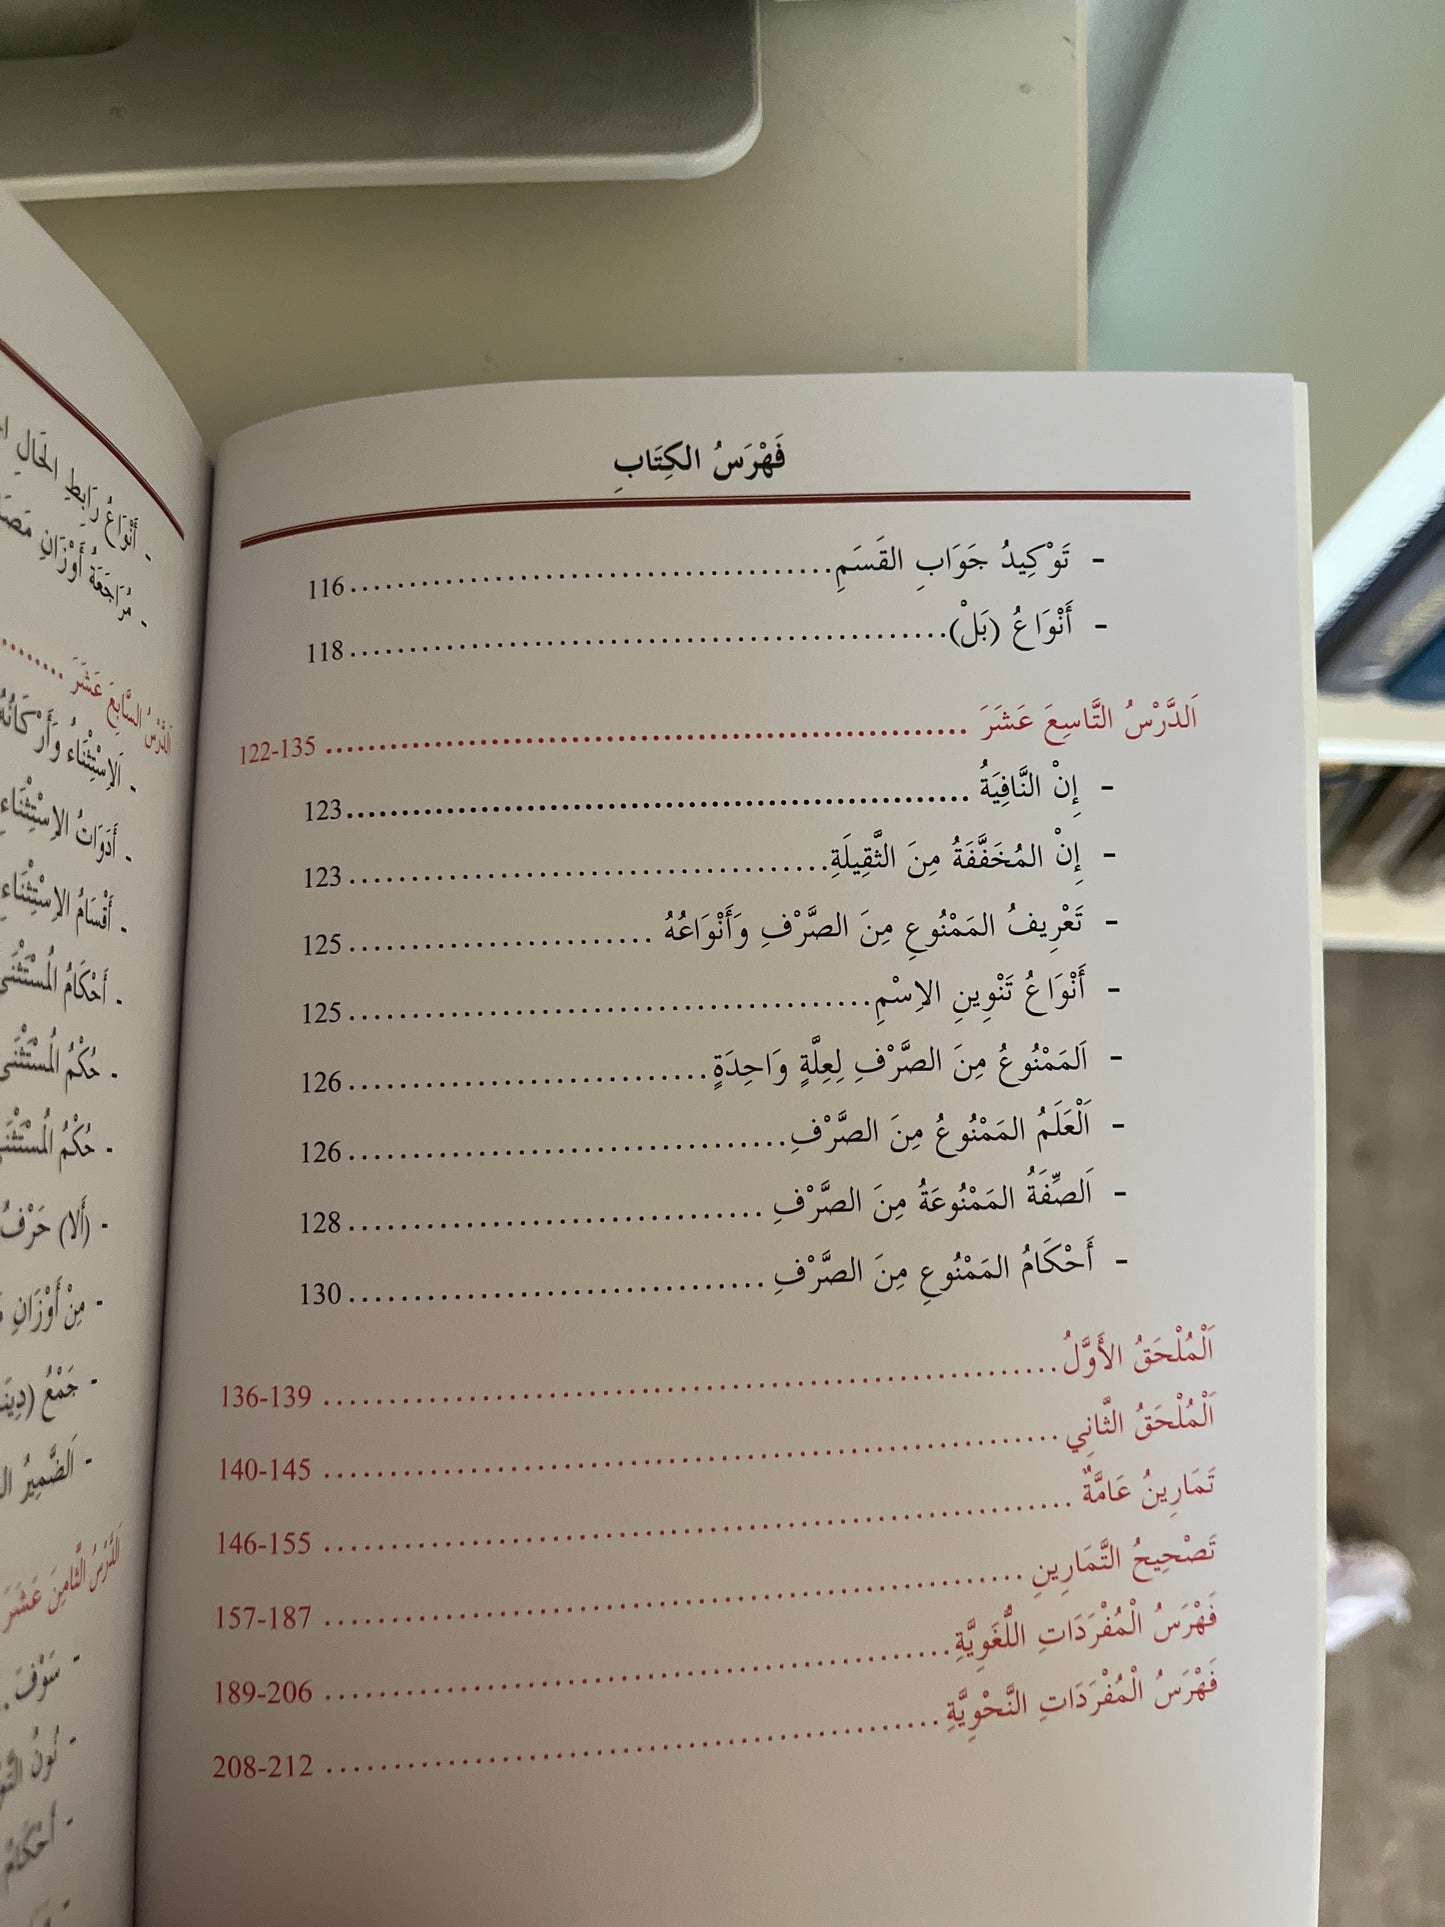 فَهْرَسُ الكِتَابِ
- تَوْكِيدُ جَوَابِ القَسَمِ 116
- أَنْوَاعُ (بَلْ) 118
اَلدَّرْسُ التَّاسِعَ عَشَرَ 122-135
- إِنْ النَّافِيَةُ 123
- إِنْ المُخَفَّفَةُ مِنَ الثَّقِيلَةِ 123
- تَعْرِيفُ المَمْنُوعِ مِنَ الصَّرْفِ وَأَنْوَاعُهُ 125
- أَنْوَاعُ تَنْوِينِ الاِسْمِ 125
- اَلمَمْنُوعُ مِنَ الصَّرْفِ لِعِلَّةٍ وَاحِدَةٍ 126
- اَلْعَلَمُ المَمْنُوعُ مِنَ الصَّرْفِ 126
- اَلصِّفَةُ المَمْنُوعَةُ مِنَ الصَّرْفِ 128
- أَحْكَامُ المَمْنُوعِ مِنَ الصَّرْفِ 130
اَلْمُلْحَقُ الأَوَّلُ 136-139
اَلْمُلْحَقُ الثَّانِي 140-145
تَمَارِينُ عَامَّةٌ 146-155
تَصْحِيحُ التَّمَارِينِ 157-187
فَهْرَسُ الْمُفْرَدَاتِ اللُّغَوِيَّةِ 189-206
فَهْرَسُ الْمُفْرَدَاتِ النَّحْوِيَّةِ 208-212
- أَنْوَاعُ رَابِطِ الحَالِ
- مُرَاجَعَةُ أَوْزَانِ
اَلدَّرْسُ السَّابِعَ عَشَرَ
- اَلاِسْتِثْنَاءُ وَأَرْكَانُهُ
- أَدَوَاتُ الاِسْتِثْنَاءِ
- أَقْسَامُ الاِسْتِثْنَاءِ
- أَحْكَامُ المُسْتَثْنَى
- حُكْمُ المُسْتَثْنَى
- حُكْمُ المُسْتَثْنَى
- (أَلا) حَرْفُ
- مِنْ أَوْزَانِ
- جَمْعُ
- اَلضَّمِيرُ
اَلدَّرْسُ الثَّامِنَ عَشَرَ
- سَوْفَ
- نُونُ
- أَحْكَامُ